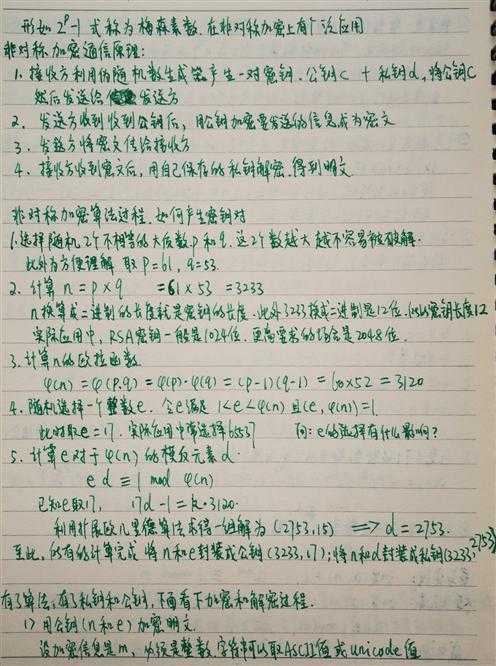 形如 2^p-1 式称为梅森素数. 在非对称加密上有广泛应用
非对称加密通信原理:
1. 接收方利用伪随机数生成器产生一对密钥. 公钥c + 私钥d, 将公钥c
然后发送给 发送方
2. 发送方收到收到公钥后, 用公钥加密要发送的信息成为密文
3. 发送方将密文传给接收方
4. 接收方收到密文后, 用自己保存的私钥解密. 得到明文
非对称加密算法过程. 如何产生密钥对
1. 选择随机2个不相等的大质数p和q. 这2个数越大越不容易被破解.
此外为方便理解 取 P=61, q=53.
2. 计算 n = p × q = 61 × 53 = 3233
n换算成二进制的长度就是密钥的长度. 此外3233换成二进制是12位. 所以密钥长度12
实际应用中, RSA密钥一般是1024位. 更高要求的场合是2048位.
3. 计算n的欧拉函数
φ(n) = φ(p.q) = φ(p)·φ(q) = (p-1)(q-1) = 60×52 = 3120
4. 随机选择一个整数e. 令e满足 1<e<φ(n) 且(e, φ(n))=1
此时取e=17. 实际应用中常选择65537 问: e的选择有什么影响?
5. 计算e对于φ(n)的模反元素d.
e d ≡ 1 mod φ(n)
已知e取17, 17d - 1 = k·3120.
利用扩展欧几里德算法求得一组解为 (2753,15) ⟹ d = 2753.
至此, 所有的计算完成 将n和e封装成公钥(3233,17); 将n和d封装成私钥(3233,2753)
有了算法, 有了私钥和公钥, 下面看下加密和解密过程.
1) 用公钥(n和e)加密明文.
设加密信息是m, 必须是整数, 字符串可以取ASCII值或unicode值